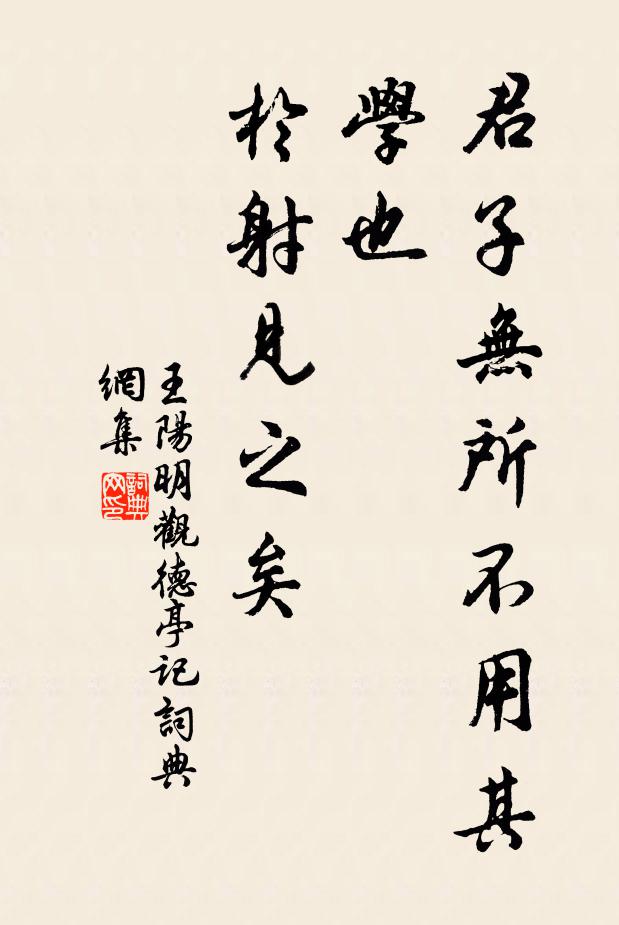 君子無所不用其
學也
於射見之矣
王陽明觀德亭記詞典
網集
詞典
网印